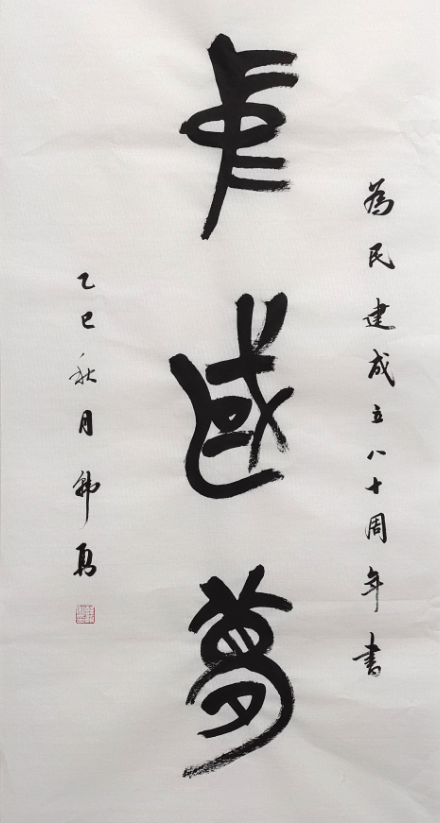 中國夢
為民建成立八十周年書
乙巳秋月韩勇